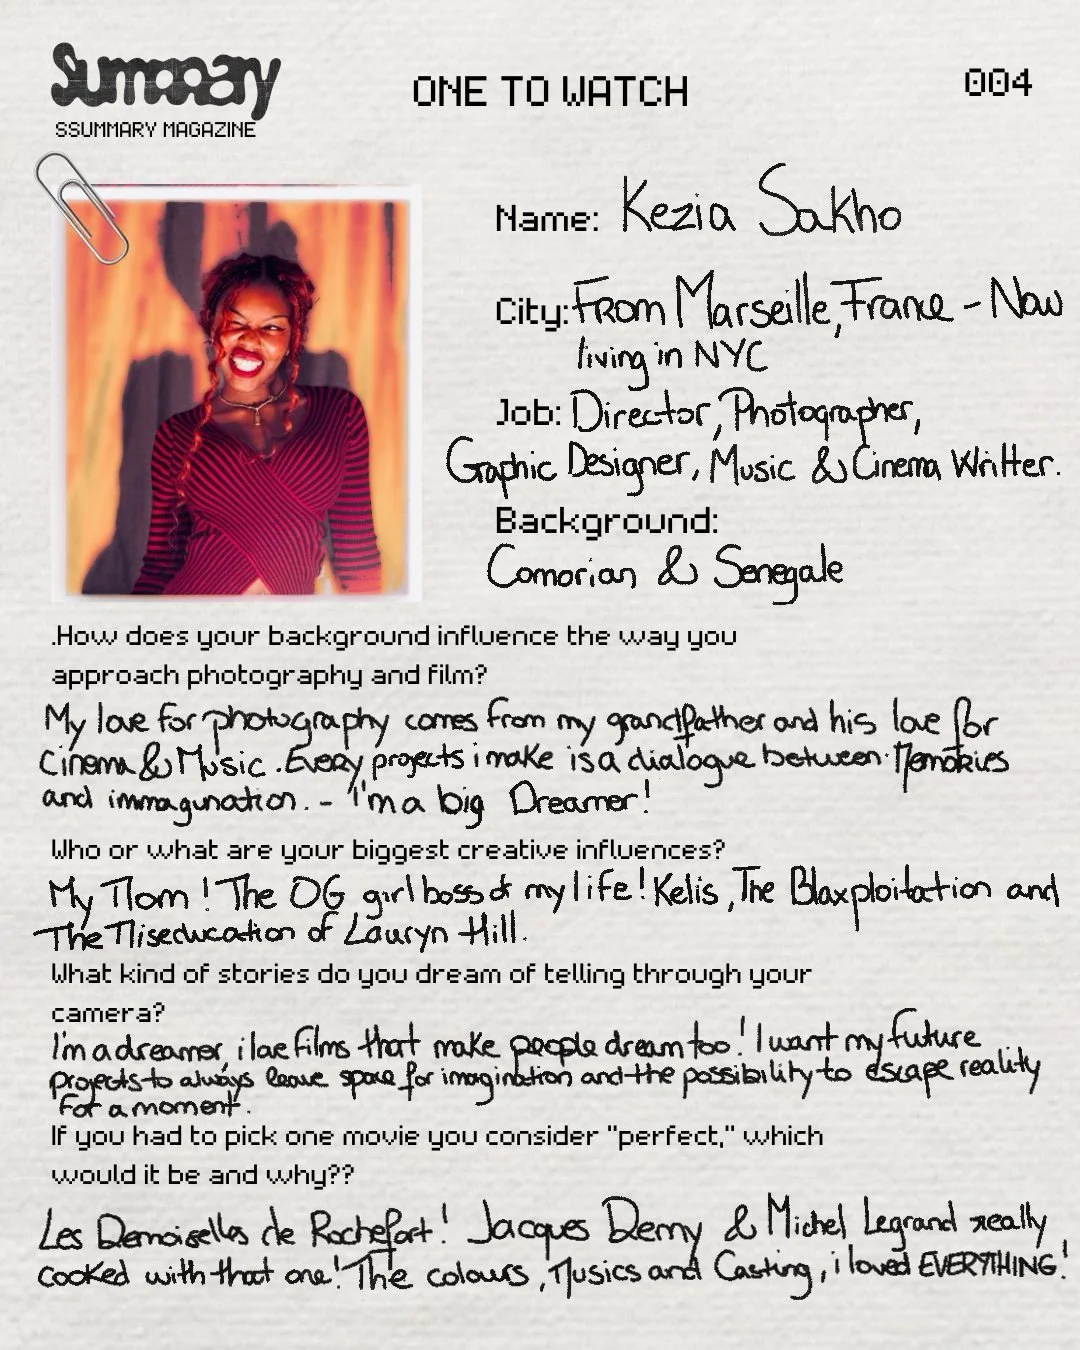 Summary
ONE TO WATCH
004
SSUMMARY MAGAZINE
Name: Kezia Sakho
City: From Marseille, France - Now
living in NYC
Job: Director, Photographer,
Graphic Designer, Music & Cinema Writter.
Background:
Comorian & Senegale
.How does your background influence the way you
approach photography and film?
My love for photography comes from my grandfather and his love for
Cinema & Music. Every projects i make is a dialogue between Memories
and immagination. - I'm a big Dreamer!
Who or what are your biggest creative influences?
My Mom! The OG girl boss of my life! Kelis, The Blaxploitation and
The Miseducation of Lauryn Hill.
What kind of stories do you dream of telling through your
camera?
I'm a dreamer, i love films that make people dream too! I want my future
projects to always leave space for imagination and the possibility to escape reality
For a moment.
If you had to pick one movie you consider "perfect," which
would it be and why??
Les Demoiselles de Rochefort! Jacques Demy & Michel Legrand really
cooked with that one! The colours, Musics and Casting, i loved EVERYTHING!